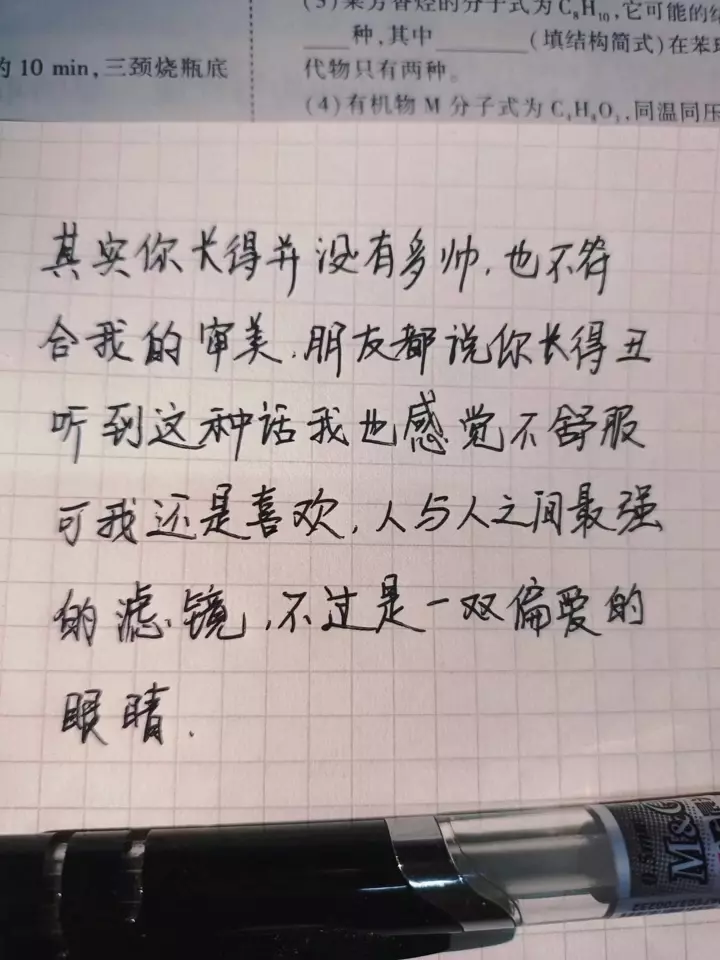 (3)某芳香烃的分子式为C₈H₁₀,它可能的结
种,其中________(填结构简式)在苯环
的 10 min,三颈烧瓶底
代物只有两种。
(4)有机物 M 分子式为 C₄H₈O₂,同温同压
其实你长得并没有多帅,也不符
合我的审美.朋友都说你长得丑
听到这种话我也感觉不舒服
可我还是喜欢,人与人之间最强
的滤镜,不过是一双偏爱的
眼睛.
0.5mm
M&G